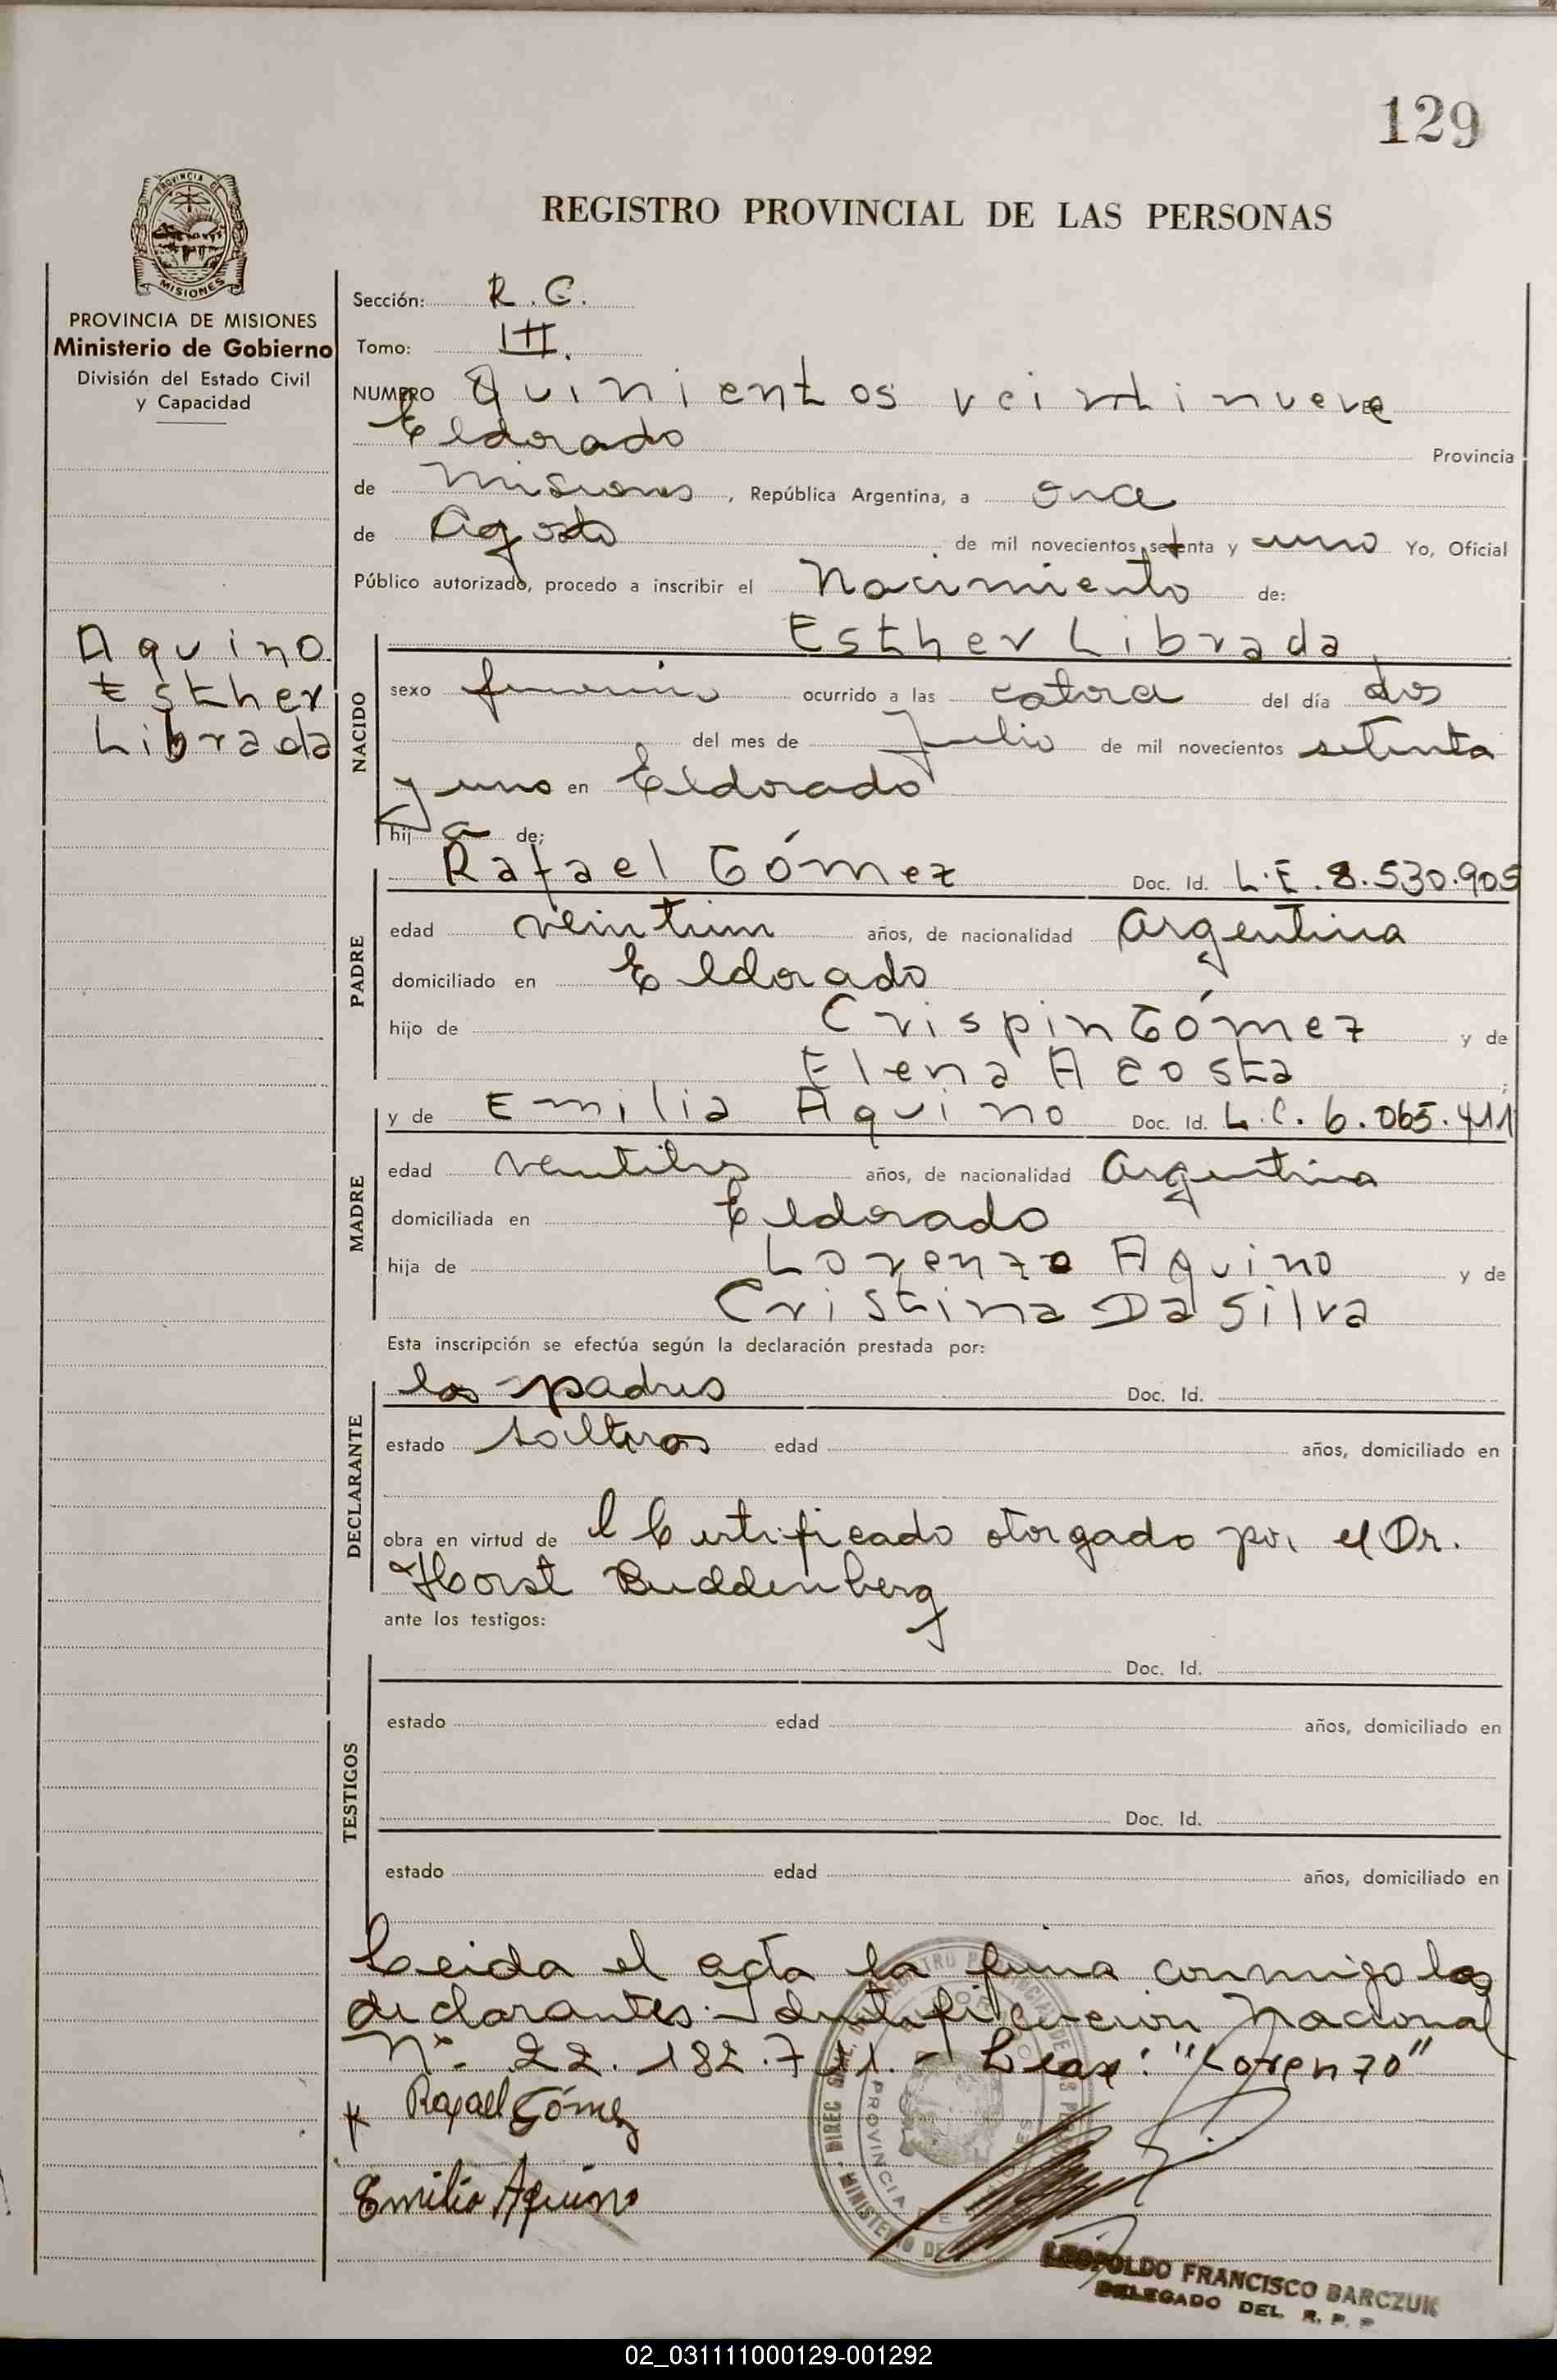 129
REGISTRO PROVINCIAL DE LAS PERSONAS
PROVINCIA DE MISIONES
Ministerio de Gobierno
División del Estado Civil
y Capacidad
Aquino
Esther
Librada
Sección: R.C.
Tomo: III.
NUMERO Quinientos veintinueve
Eldorado Provincia
de Misiones, República Argentina, a once
de Agosto de mil novecientos setenta y uno Yo, Oficial
Público autorizado, procedo a inscribir el Nacimiento de:
Esther Librada
NACIDO
sexo femenino ocurrido a las catorce del día dos
del mes de Julio de mil novecientos setenta
y uno en Eldorado
hij a de;
PADRE
Rafael Gómez Doc. Id. L.E. 8.530.905
edad veintiun años, de nacionalidad Argentina
domiciliado en Eldorado
hijo de Crispin Gómez y de
Elena Acosta;
MADRE
y de Emilia Aquino Doc. Id. L.C. 6.065.411
edad veintitres años, de nacionalidad Argentina
domiciliada en Eldorado
hija de Lorenzo Aquino y de
Cristina Da Silva
Esta inscripción se efectúa según la declaración prestada por:
DECLARANTE
los padres Doc. Id.
estado solteros edad años, domiciliado en
obra en virtud de l Certificado otorgado por el Dr.
Horst Buddenberg
ante los testigos:
TESTIGOS
Doc. Id.
estado edad años, domiciliado en
Doc. Id.
estado edad años, domiciliado en
Leida el acta la firma conmigo los
declarantes.- Identificacion Nacional
Nº. 22.182.711.- Lease: "Lorenzo"
Rafael Gómez
Emilia Aquino
LEOPOLDO FRANCISCO BARCZUK
DELEGADO DEL R. P. P.
02_031111000129-001292